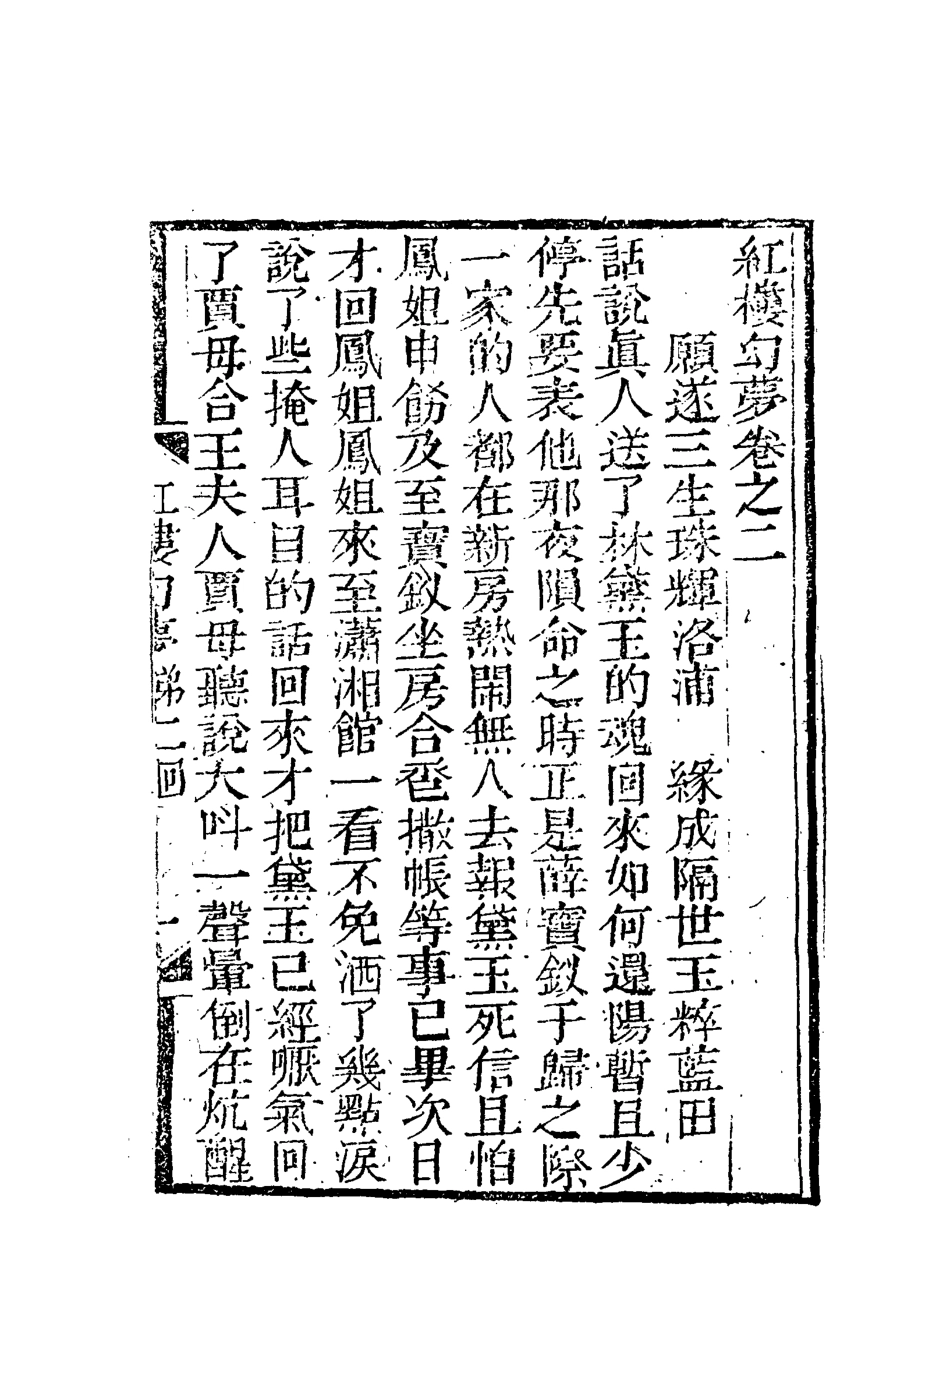 紅樓幻夢卷之二
願遂三生珠輝洛浦　緣成隔世玉粹藍田
話說眞人送了林黛玉的魂回來如何還陽暫且少
停先要表他那夜隕命之時正是薛寶釵于歸之際
一家的人都在新房熱鬧無人去報黛玉死信且怕
鳳姐申飭及至寶釵坐房合卺撒帳等事已畢次日
才回鳳姐鳳姐來至瀟湘館一看不免洒了幾點淚
說了些掩人耳目的話回來才把黛玉已經嚥氣回
了賈母合王夫人賈母聽說大呌一聲暈倒在炕醒
紅樓幻夢 第二回 一